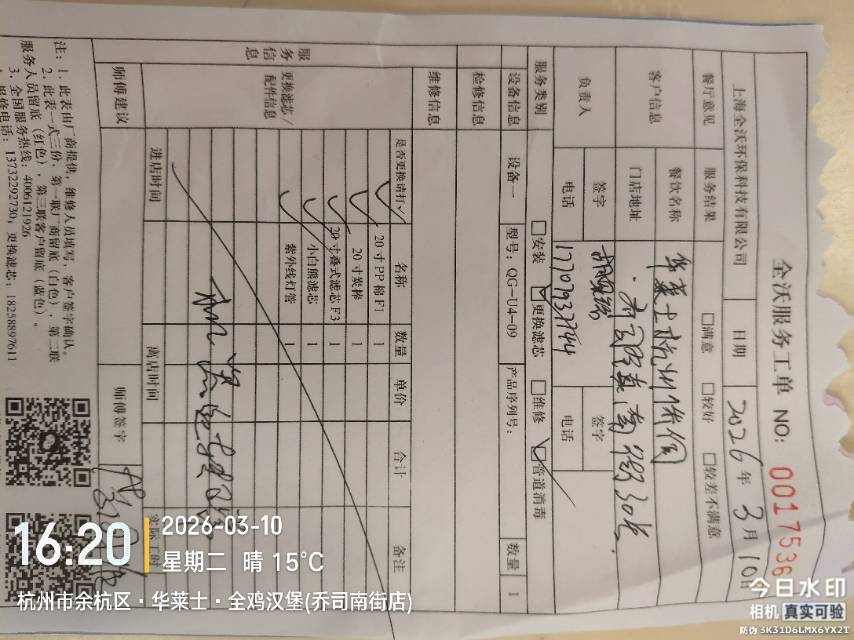 全沃服务工单 NO: 0017536
上海全沃环保科技有限公司 日期 2026年3月10日
餐厅意见 服务结果 □满意 □较好 □较差不满意
客户信息 餐饮名称 华莱士杭州乔司
门店地址 乔司街道南街30号
负责人 签字 签字
电话 17707937744 电话
服务类别 □安装 ☑更换滤芯 □维修 ☑管道消毒
设备信息 设备一 型号：QG-U4-09 产品序列号： 数量 1
检修信息
维修信息
服务信息
更换滤芯/配件信息
是否更换请打√ 名称 数量 单价 合计 备注
✓ 20寸PP棉F1 1
✓ 20寸炭棒 1
✓ 20寸叠式滤芯F3 1
✓ 小白熊滤芯 1
✓ 紫外线灯管 1
师傅建议
进店时间 离店时间 实际工时
师傅签字
注：1. 此表由厂商提供，维修人员填写，客户签字确认。
2. 此表一式三份：第一联厂商留底（白色），第二联
服务人员留底（红色），第三联客户留底（蓝色）。
3. 全国服务热线：4006121926
报修电话：13732292730，更换滤芯：18258897611
16:20
2026-03-10
星期二 晴 15°C
杭州市余杭区·华莱士·全鸡汉堡(乔司南街店)
今日水印
相机 真实可验
防伪 3K31D6LMX6YX2T